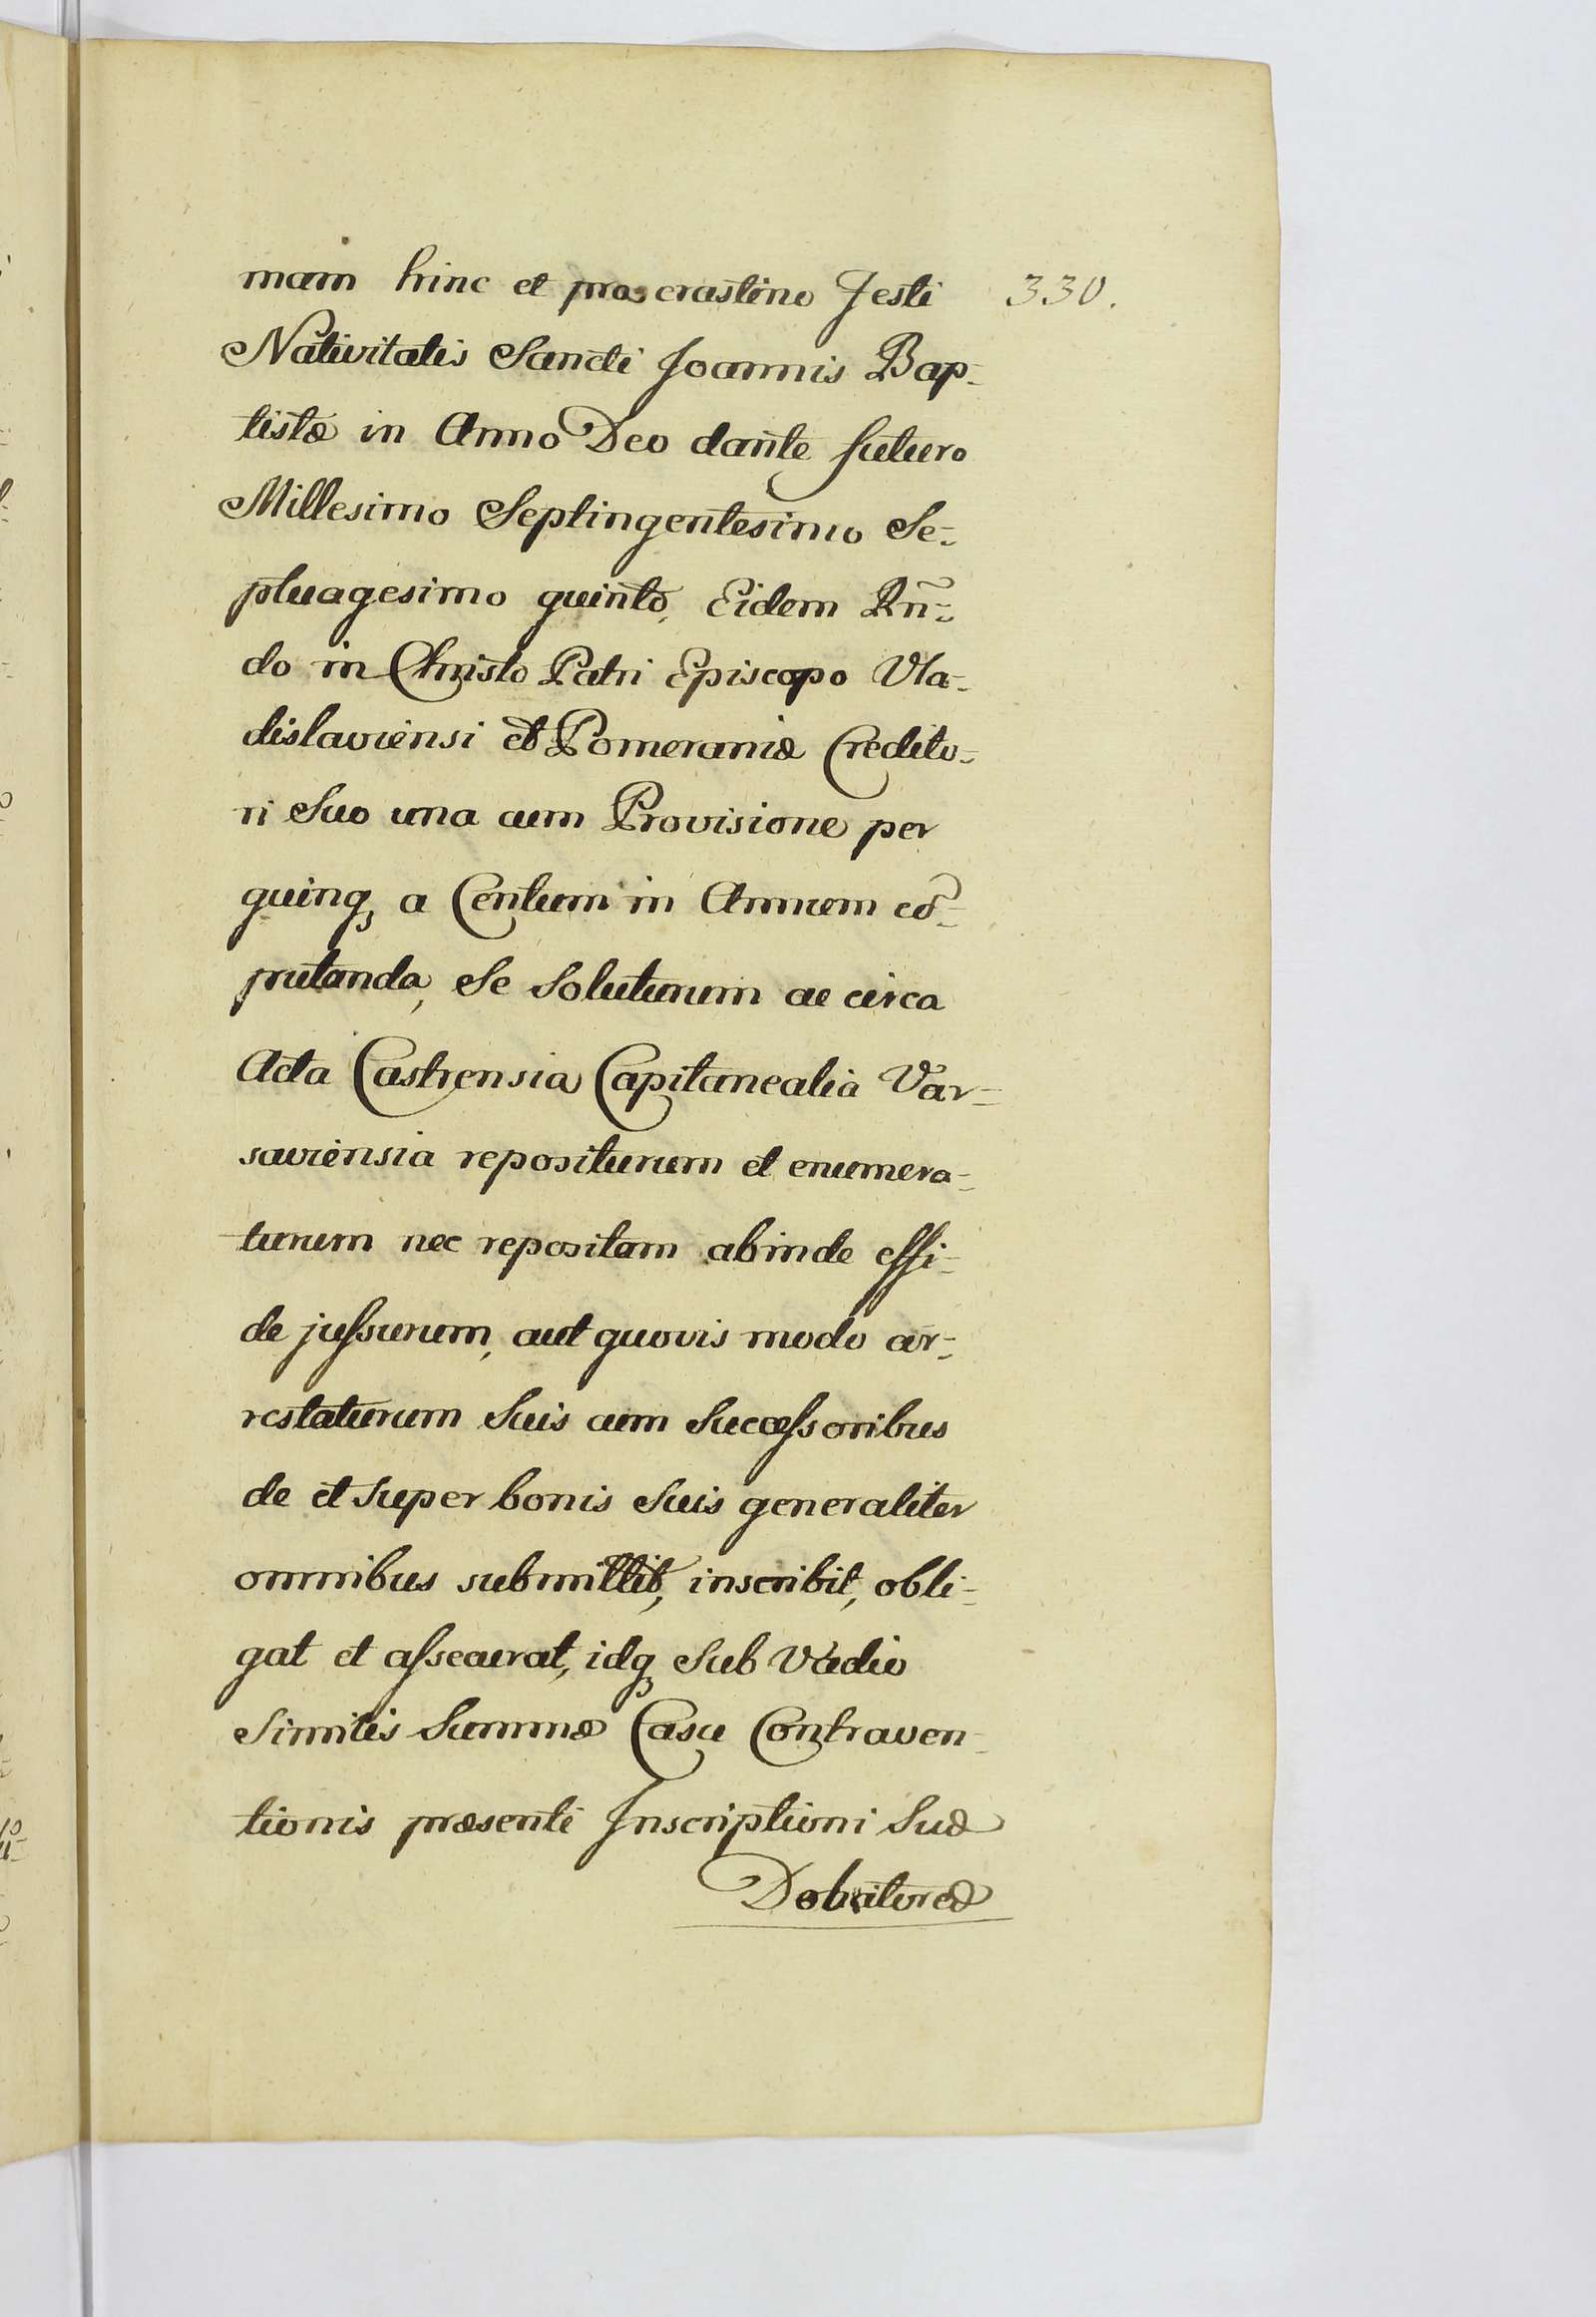 mam hinc et pro crastino Festi 330.
Nativitatis Sancti Joannis Bap-
tistæ in Anno Deo dante futuro
Millesimo Septingentesimo Se-
ptuagesimo quinto, Eidem Rñ-
do in Christo Patri Episcopo Vla-
dislaviensi et Pomeraniæ Credito-
ri Suo una cum Provisione per
quinq, a Centum in Annum cō-
putanda, Se Soluturum ac circa
Acta Castrensia Capitanealia Var-
saviensia repositurum et enumera-
turum nec repositam abinde effi-
de jussurum, aut quovis modo ar-
restaturum Suis cum Successoribus
de et super bonis Suis generaliter
omnibus submittit, inscribit, obli-
gat et assecurat, idq, Sub Vadio
Similis Summæ Casu Contraven-
tionis præsenti Inscriptioni Suæ